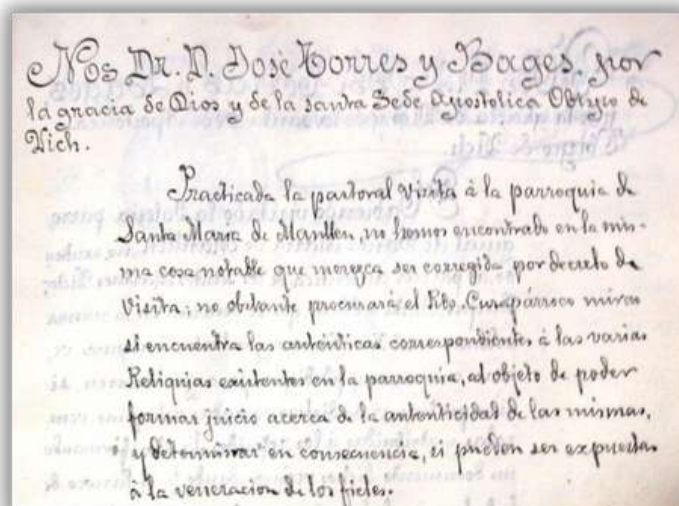 Nos Dr. D. José Torres y Bages, por
la gracia de Dios y de la Santa Sede Apostolica Obispo de
Vich.
Practicada la pastoral Visita á la parroquia de
Santa Maria de Manlleu, no hemos encontrado en la mis-
ma cosa notable que merezca ser corregida por decreto de
Visita; no obstante procurará el Rdo. Cura párroco mirar
si encuentra las auténticas correspondientes á las varias
Reliquias existentes en la parroquia, al objeto de poder
formar juicio acerca de la autenticidad de las mismas,
y determinar en consecuencia, si pueden ser expuestas
á la veneracion de los fieles.